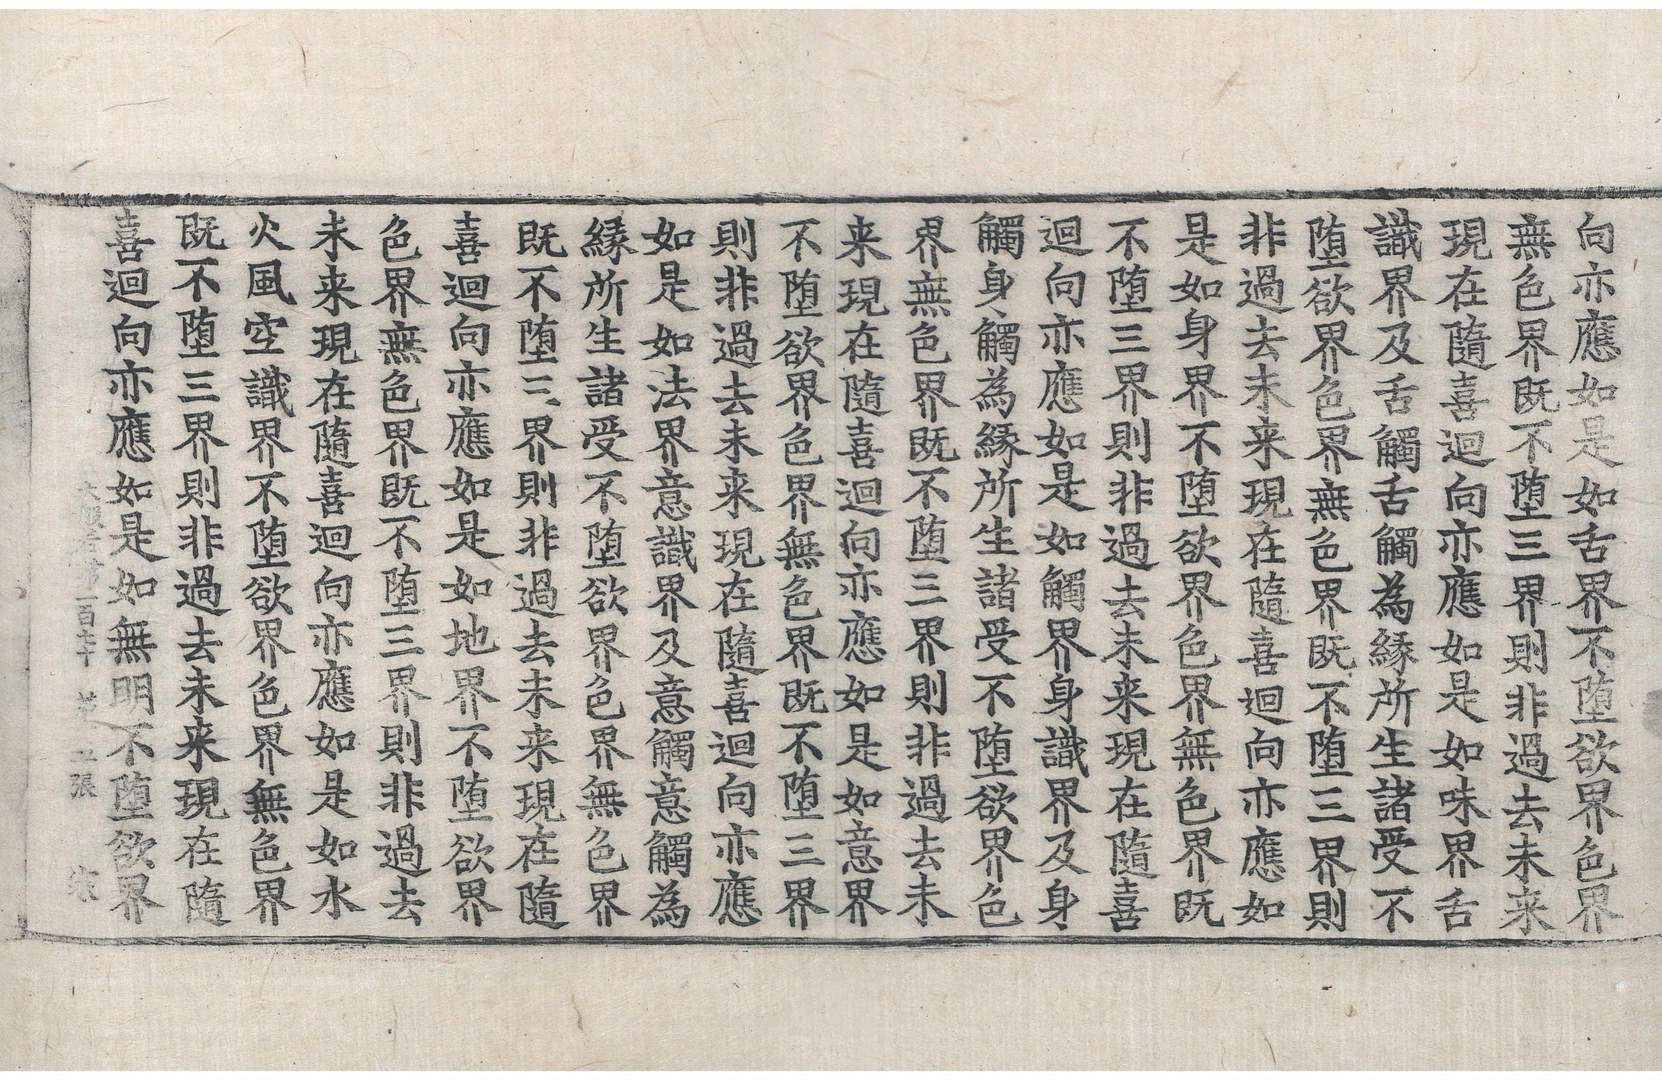 向亦應如是如舌界不堕欲界色界
無色界既不堕三界則非過去未来
現在隨喜迴向亦應如是如味界舌
識界及舌觸舌觸為縁所生諸受不
堕欲界色界無色界既不堕三界則
非過去未来現在隨喜迴向亦應如
是如身界不堕欲界色界無色界既
不堕三界則非過去未来現在隨喜
迴向亦應如是如觸界身識界及身
觸身觸為縁所生諸受不堕欲界色
界無色界既不堕三界則非過去未
来現在隨喜迴向亦應如是如意界
不堕欲界色界無色界既不堕三界
則非過去未来現在隨喜迴向亦應
如是如法界意識界及意觸意觸為
縁所生諸受不堕欲界色界無色界
既不堕三界則非過去未来現在隨
喜迴向亦應如是如地界不堕欲界
色界無色界既不堕三界則非過去
未来現在隨喜迴向亦應如是如水
火風空識界不堕欲界色界無色界
既不堕三界則非過去未来現在隨
喜迴向亦應如是如無明不堕欲界
大般若第一百 張